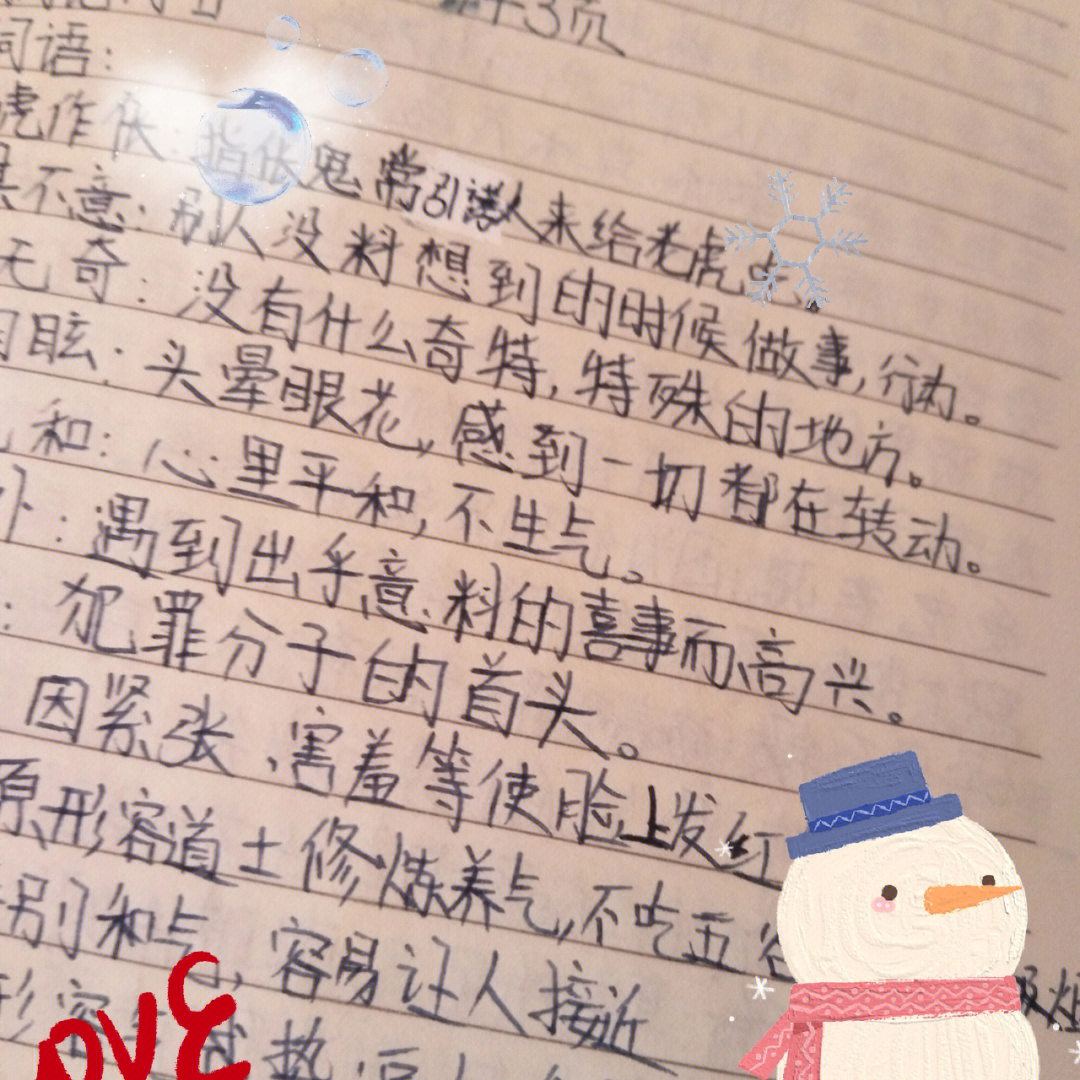 13页
词语:
虎作伥:指伥鬼常引诱人来给老虎
不意:别人没料想到的时候做事,行为。
无奇:没有什么奇特,特殊的地方。
目眩:头晕眼花,感到一切都在转动。
和:心里平和,不生气。
外:遇到出乎意料的喜事而高兴。
:犯罪分子的首头。
因紧张,害羞等使脸上发红
原形容道士修炼养气,不吃五谷
特别和气,容易让人接近
形容
OVE